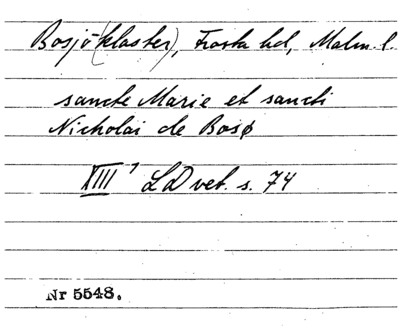 Bosjö (kloster), Frosta hd, Malm. l.
sancte Marie et sancti
Nicholai de Bosø
XIII' LD vet. s. 74
Nr 5548.